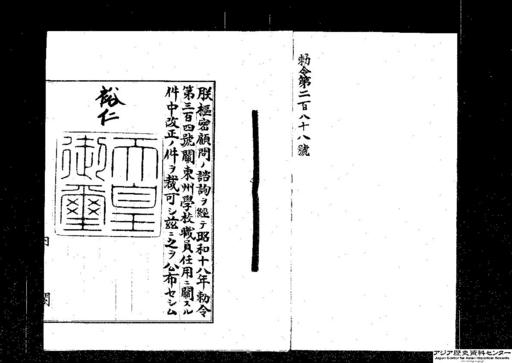 勅令第二百八十八號
朕樞密顧問ノ諮詢ヲ經テ昭和十八年勅令
第三百四號關東州學校職員任用ニ關スル
件中改正ノ件ヲ裁可シ玆ニ之ヲ公布セシム
裕仁
天皇
御璽
内閣
アジア歴史資料センター
Japan Center for Asian Historical Records